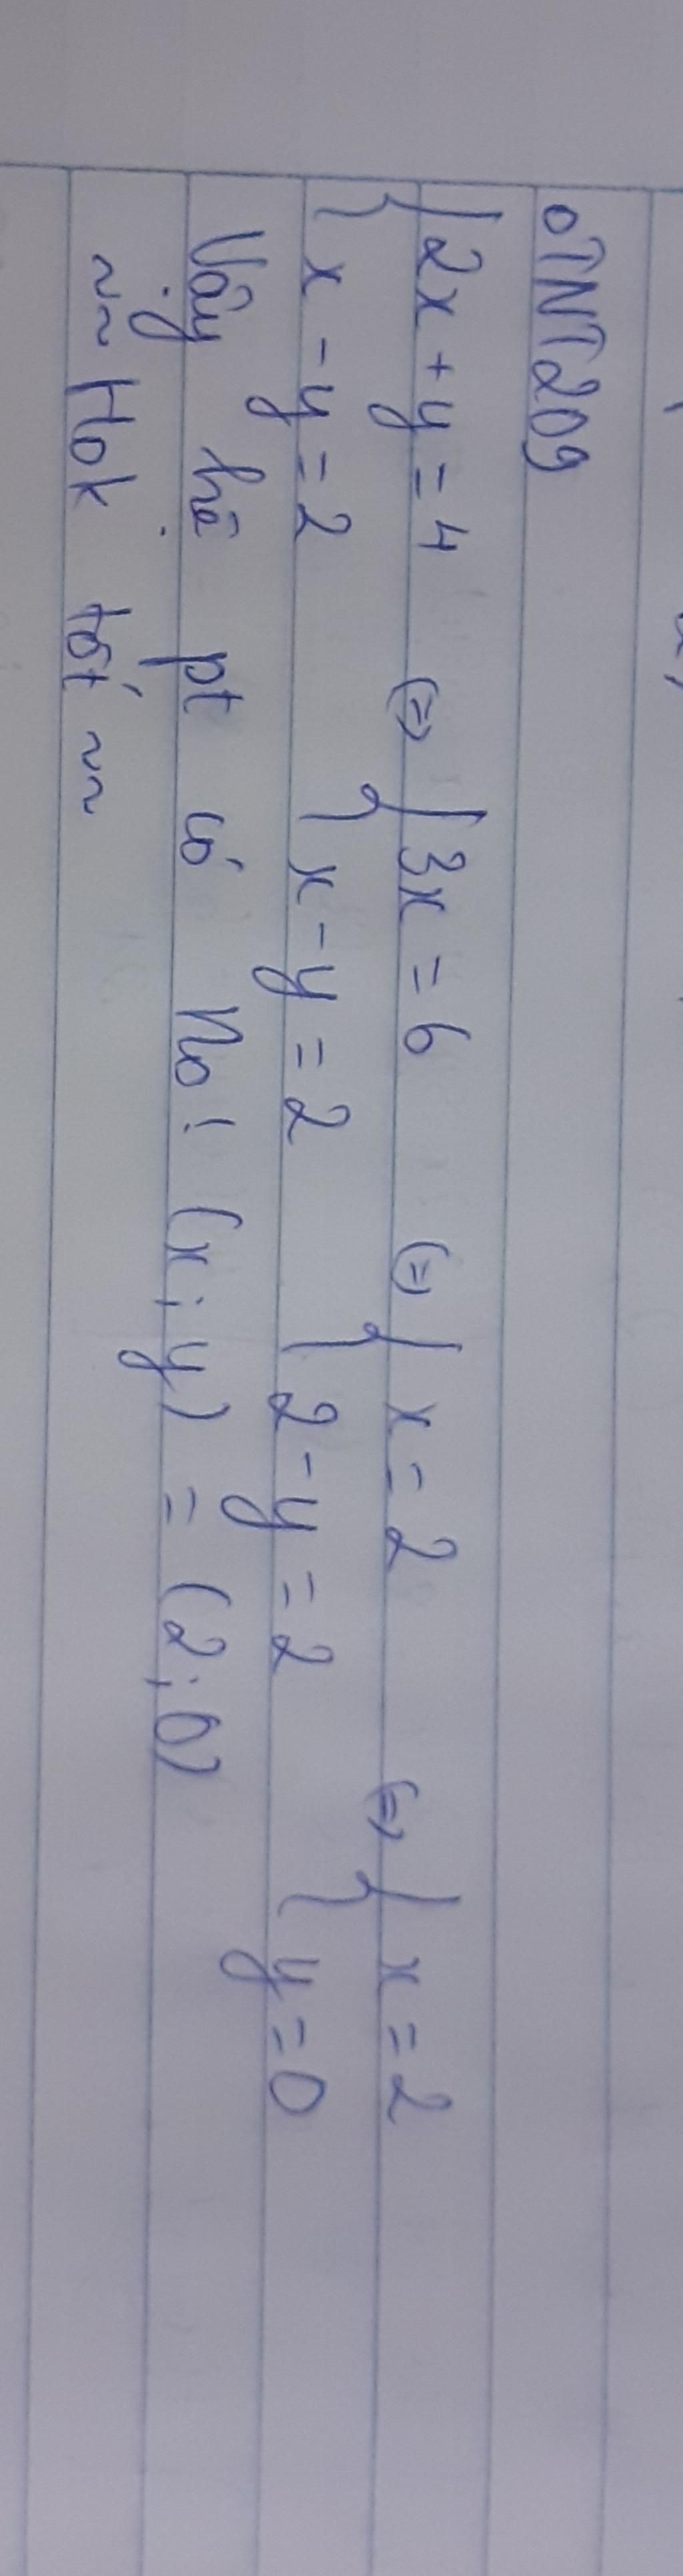 oTNT209
{2x + y = 4 (=) {3x = 6 (=) {x = 2 (=) {x = 2
{x - y = 2 {x - y = 2 {2 - y = 2 {y = 0
Vậy hệ pt có No! (x; y) = (2; 0)
~~ Hok tốt ~~